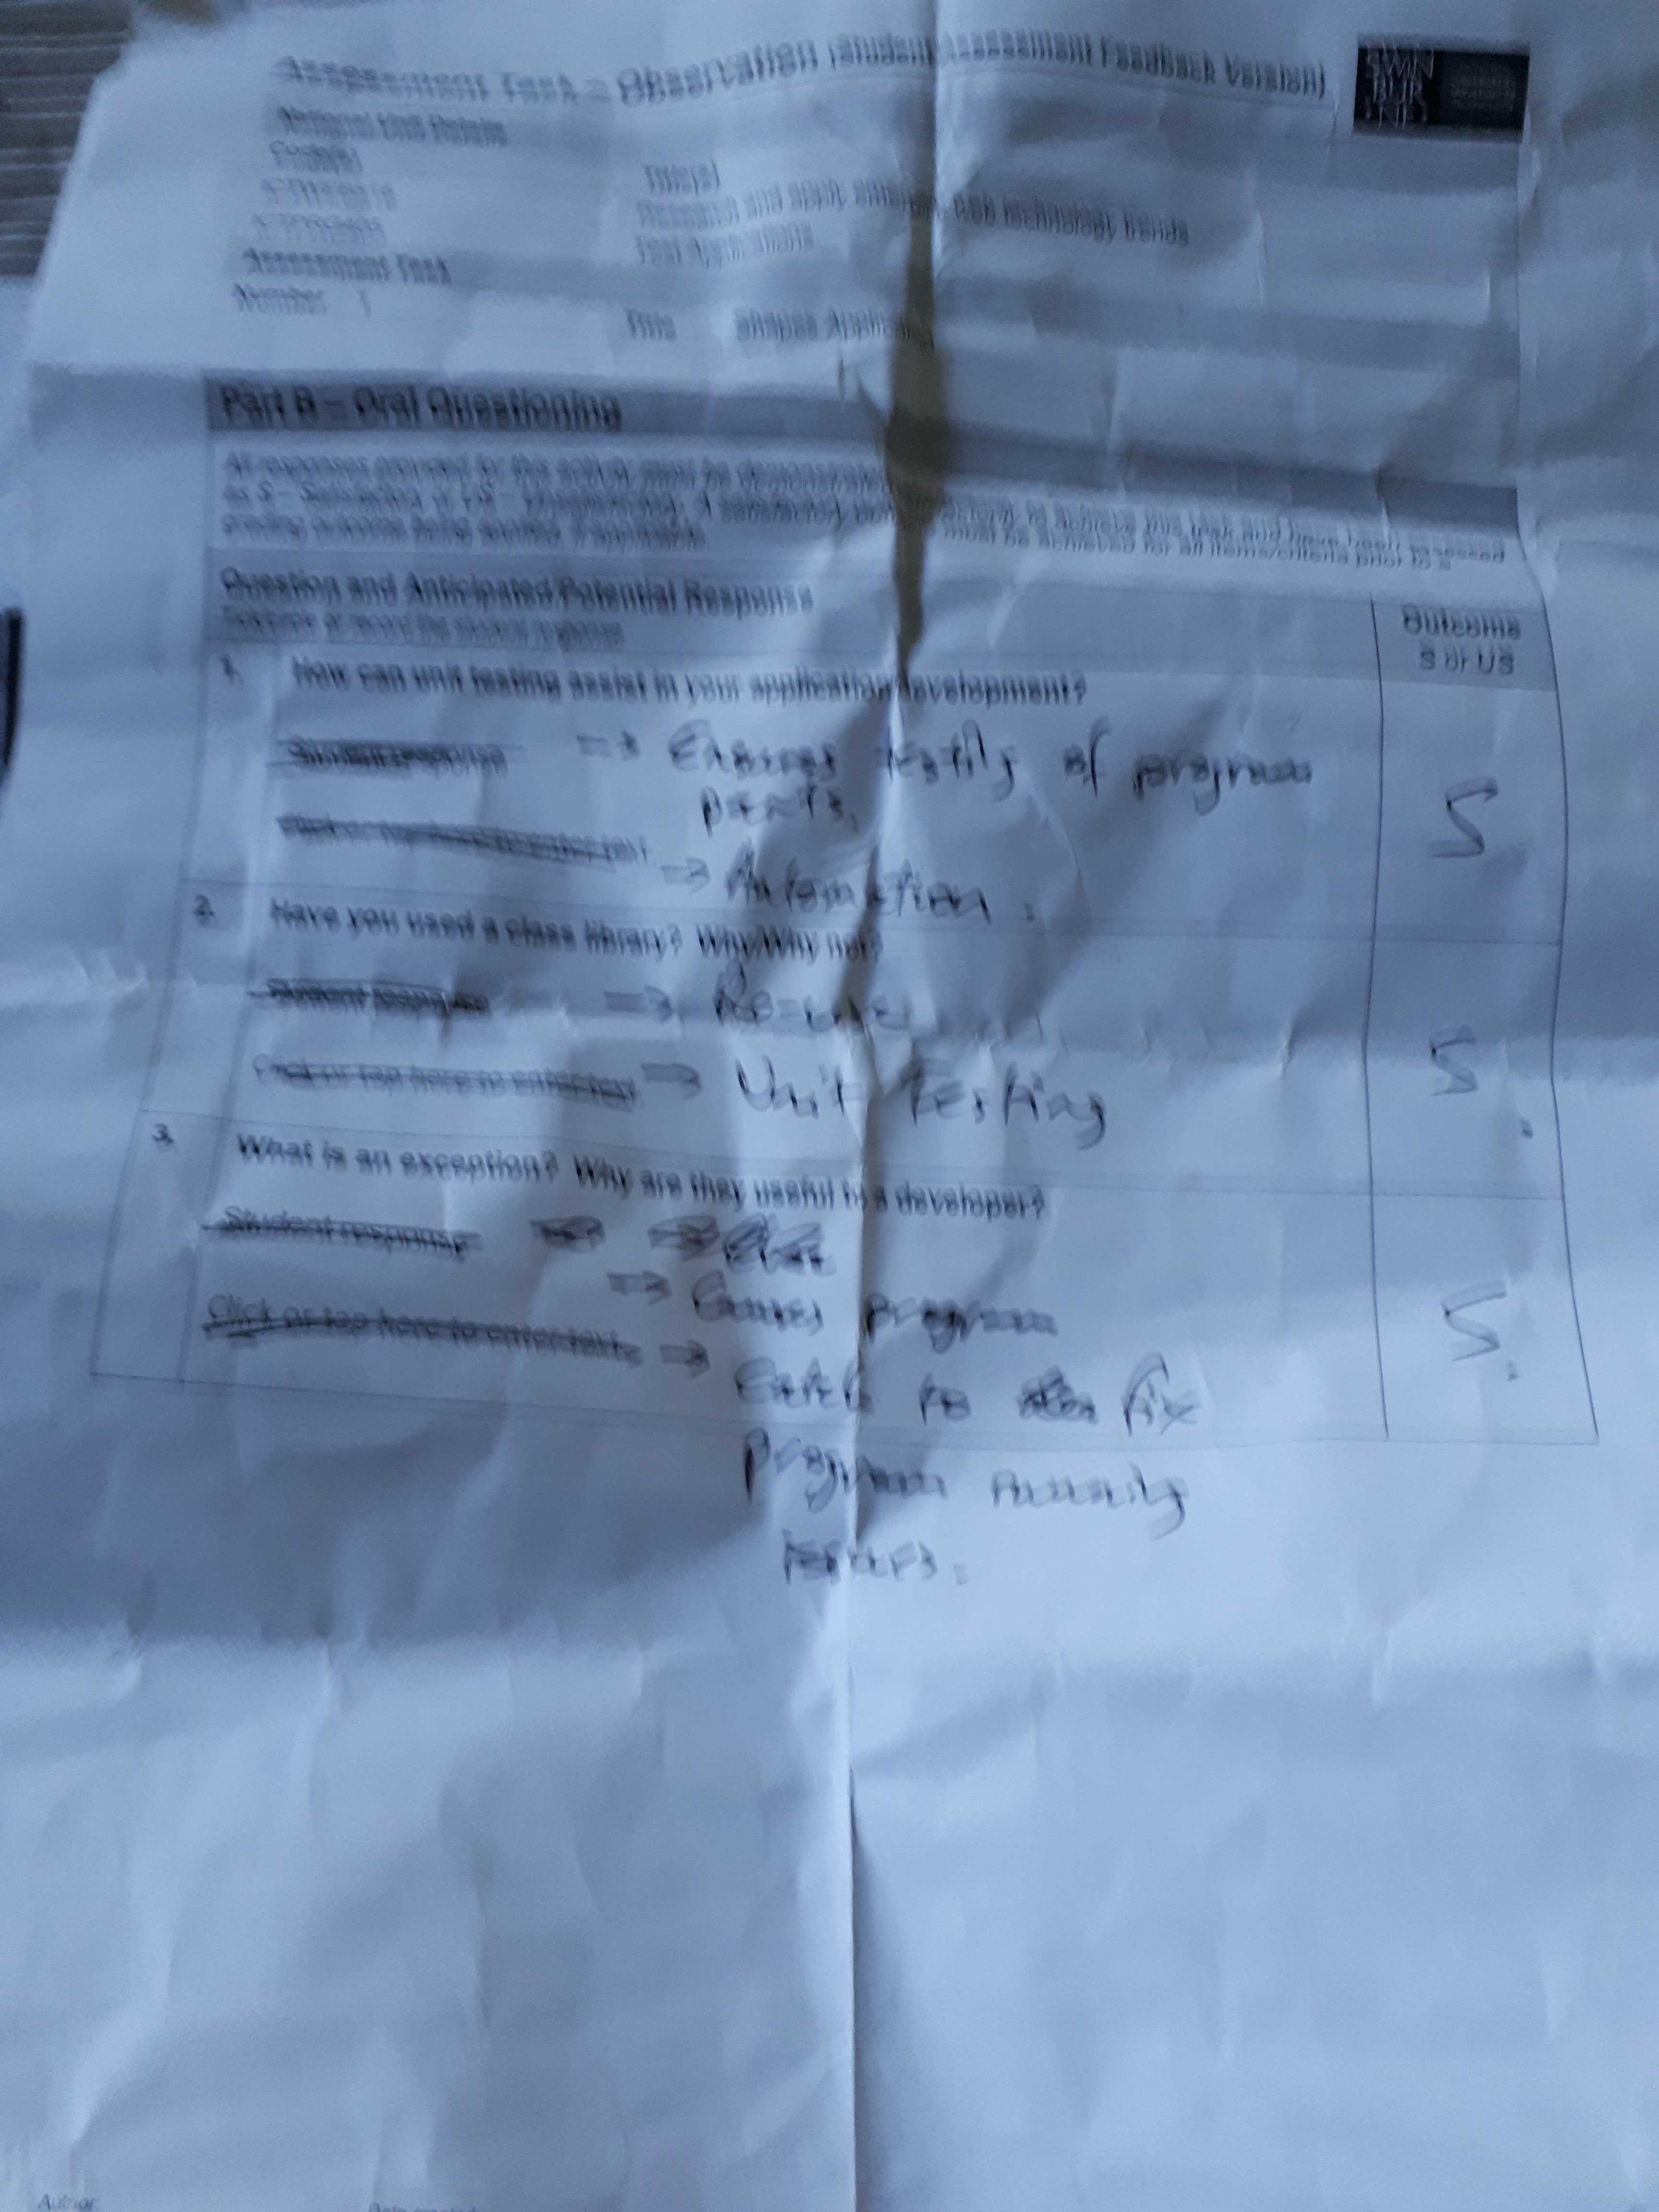 Assessment Task – Observation (Student Assessment Feedback Version)
SWIN
BUR
NE
National Unit Details
Code(s)
Title(s)
Research and apply emerging web technology trends
Test Applications
Assessment Task
Number 1
Title Shapes
Part B – Oral Questioning
All responses provided for this activity must be demonstrated to achieve this task and have been assessed
as S – Satisfactory or US – Unsatisfactory. A satisfactory must be achieved for all items/criteria prior to a
grading outcome being applied, if applicable.
Question and Anticipated/Potential Response
Outcome
S or US
1. How can unit testing assist in your application development?
Student response => Ensures testing of program
parts.
Click or tap here to enter text
=> Automation.
S
2. Have you used a class library? Why/Why not?
Student response => Re-use
Click or tap here to enter text => Unit Testing
S
3. What is an exception? Why are they useful to a developer?
Student response
=> program
Click or tap here to enter text. =>
Catch to fix
program running
S.
Author:
Date created